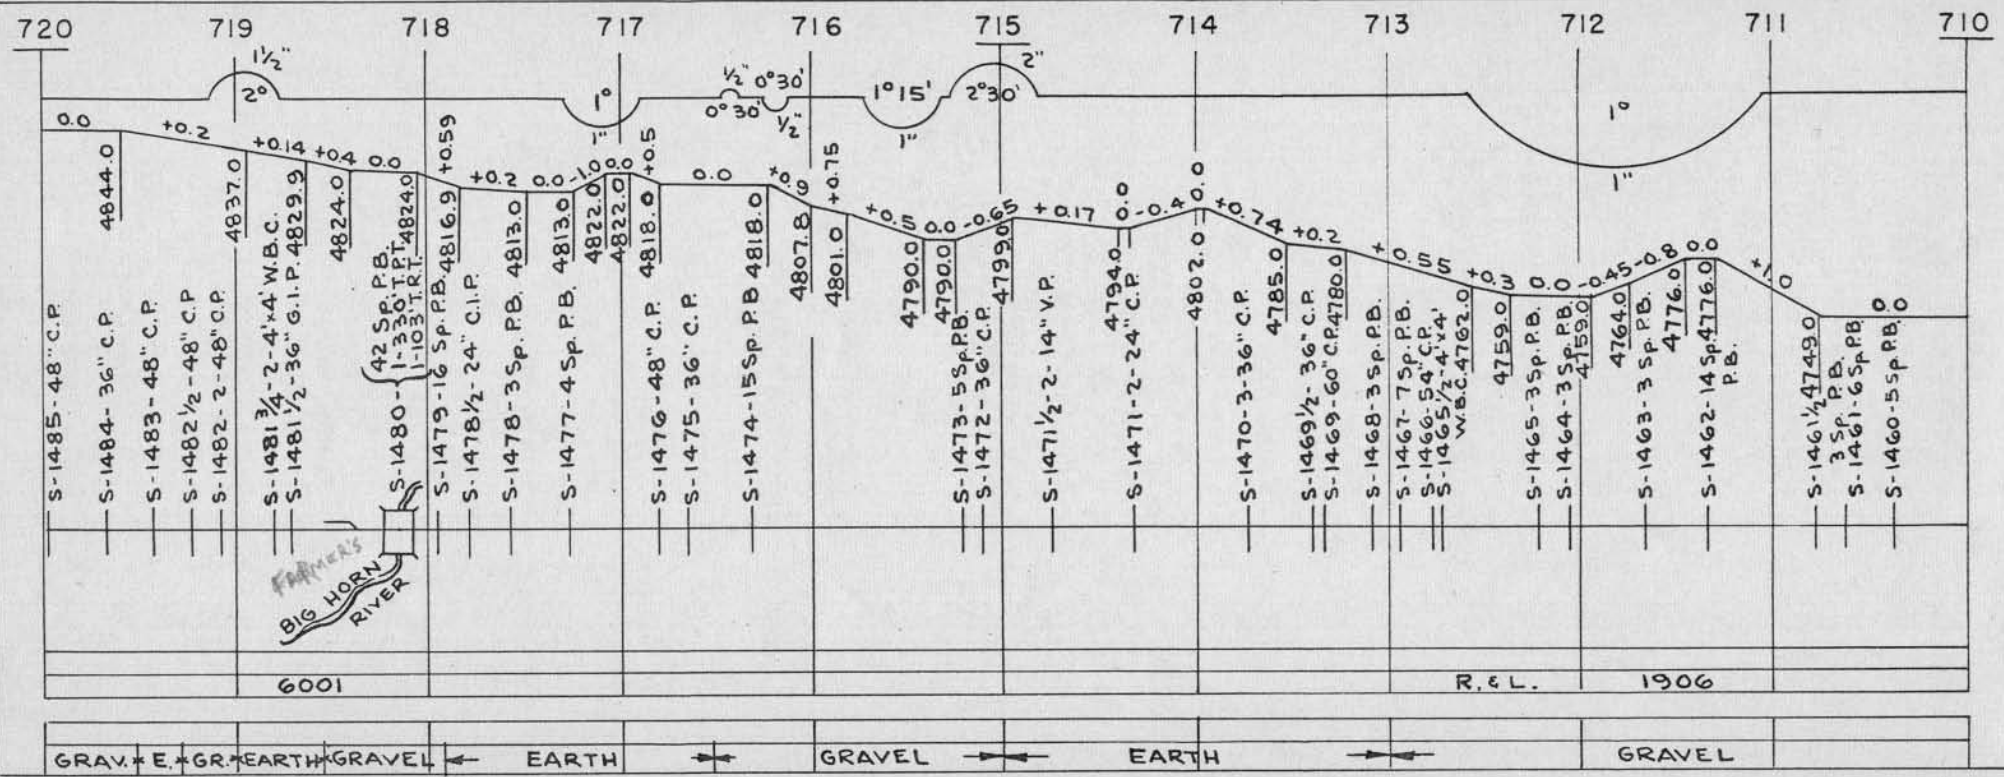 720 719 718 717 716 715 714 713 712 711 710
1½" 2" ½" 0°30'
2° 1° 0°30' ½" 1°15' 2°30' 1°
1" 1" 1"
0.0 +0.2 +0.14 +0.4 0.0 +0.59 +0.2 0.0 -1.0 0.0 +0.5 0.0 +0.9 +0.75 +0.5 0.0 -0.65 +0.17 0.0 -0.4 0.0 +0.74 +0.2 +0.55 +0.3 0.0 -0.45 -0.8 0.0 +1.0 0.0
4844.0 4837.0 4829.9 4824.0 4824.0 4816.9 4813.0 4813.0 4822.0 4822.0 4818.0 4818.0 4807.8 4801.0 4790.0 4790.0 4799.0 4794.0 4802.0 4785.0 4780.0 4762.0 4759.0 4759.0 4764.0 4776.0 4776.0 4749.0
S-1485-48" C.P.
S-1484-36" C.P.
S-1483-48" C.P.
S-1482½-48" C.P
S-1482-2-48" C.P.
S-1481¾-2-4'x4' W.B.C.
S-1481½-36" G.I.P.
S-1480-
42 Sp. P.B.
1-330' T.P.T.
1-103' T.R.T.
S-1479-16 Sp. P.B.
S-1478½-24" C.I.P.
S-1478-3 Sp. P.B.
S-1477-4 Sp. P.B.
S-1476-48" C.P.
S-1475-36" C.P.
S-1474-15 Sp. P.B
S-1473-5 Sp. P.B.
S-1472-36" C.P.
S-1471½-2-14" V.P.
S-1471-2-24" C.P.
S-1470-3-36" C.P.
S-1469½-36" C.P.
S-1469-60" C.P.
S-1468-3 Sp. P.B.
S-1467-7 Sp. P.B.
S-1466-54" C.P.
S-1465½-4'x4'
W.B.C.
S-1465-3 Sp. P.B.
S-1464-3 Sp. P.B.
S-1463-3 Sp. P.B.
S-1462-14 Sp.
P.B.
S-1461½
3 Sp. P.B.
S-1461-6 Sp P.B.
S-1460-5 Sp. P.B.
FARMER'S
BIG HORN
RIVER
6001 R. & L. 1906
GRAV. E. GR. EARTH GRAVEL EARTH GRAVEL EARTH GRAVEL